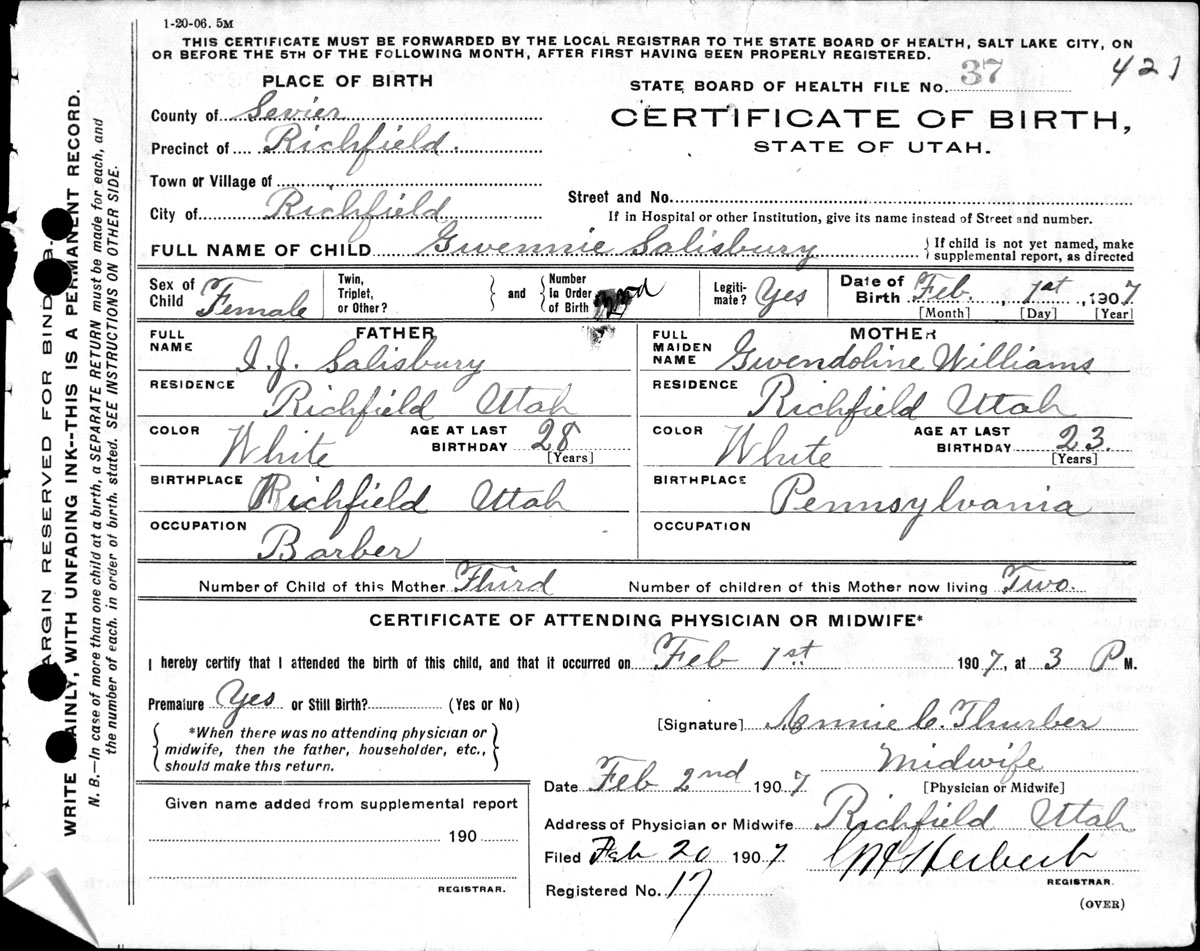 1-20-06. 5M
THIS CERTIFICATE MUST BE FORWARDED BY THE LOCAL REGISTRAR TO THE STATE BOARD OF HEALTH, SALT LAKE CITY, ON
OR BEFORE THE 5TH OF THE FOLLOWING MONTH, AFTER FIRST HAVING BEEN PROPERLY REGISTERED.
421
PLACE OF BIRTH
STATE BOARD OF HEALTH FILE No. 37
County of Sevier
CERTIFICATE OF BIRTH,
Precinct of Richfield.
STATE OF UTAH.
Town or Village of
Street and No.
City of Richfield
If in Hospital or other Institution, give its name instead of Street and number.
FULL NAME OF CHILD Gwennie Salisbury
If child is not yet named, make
supplemental report, as directed
Sex of Child Female
Twin, Triplet, or Other?
and
Number in Order of Birth
Legiti-mate? Yes
Date of Birth Feb. 1st, 1907
[Month] [Day] [Year]
FATHER
FULL NAME I. J. Salisbury
RESIDENCE Richfield Utah
COLOR White
AGE AT LAST BIRTHDAY 28
[Years]
BIRTHPLACE Richfield Utah
OCCUPATION Barber
MOTHER
FULL MAIDEN NAME Gwendoline Williams
RESIDENCE Richfield Utah
COLOR White
AGE AT LAST BIRTHDAY 23.
[Years]
BIRTHPLACE Pennsylvania
OCCUPATION
Number of Child of this Mother Third
Number of children of this Mother now living Two.
CERTIFICATE OF ATTENDING PHYSICIAN OR MIDWIFE*
I hereby certify that I attended the birth of this child, and that it occurred on Feb 1st 1907, at 3 P M.
Premature Yes or Still Birth? (Yes or No)
*When there was no attending physician or
midwife, then the father, householder, etc.,
should make this return.
[Signature] Annie C. Thurber
Midwife
[Physician or Midwife]
Date Feb 2nd 1907
Given name added from supplemental report
190
REGISTRAR.
Address of Physician or Midwife Richfield Utah
Filed Feb 20 1907
Herbert
REGISTRAR.
Registered No. 17
(OVER)
ARGIN RESERVED FOR BIND
WRITE AINLY, WITH UNFADING INK--THIS IS A PERMANENT RECORD.
N. B.—In case of more than one child at a birth, a SEPARATE RETURN must be made for each, and
the number of each, in order of birth, stated. SEE INSTRUCTIONS ON OTHER SIDE.